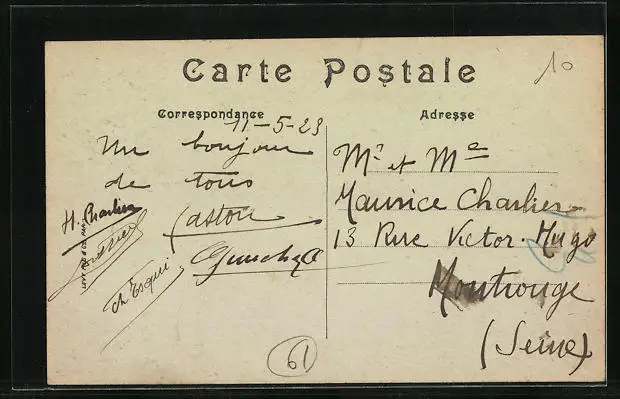 Carte Postale
10
Correspondance
Adresse
11-5-23
Un bonjour
de tous
H. Charlier
Gaston
Ch Esqui
Mr et Me
Maurice Charlier
13 Rue Victor-Hugo
Montrouge
(Seine)
61